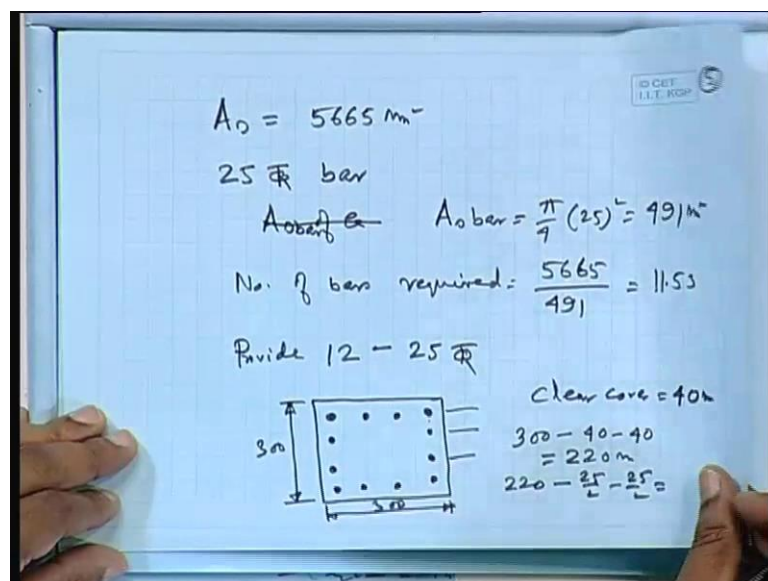 © CET
I.I.T. KGP
5
As = 5665 mm²
25 Ŧ bar
As bar = π/4 (25)² = 491 m²
No. of bars required = 5665/491 = 11.53
Provide 12 - 25
Clear cover = 40m
300 - 40 - 40
= 220 m
220 - 25/2 - 25/2 =
300
300